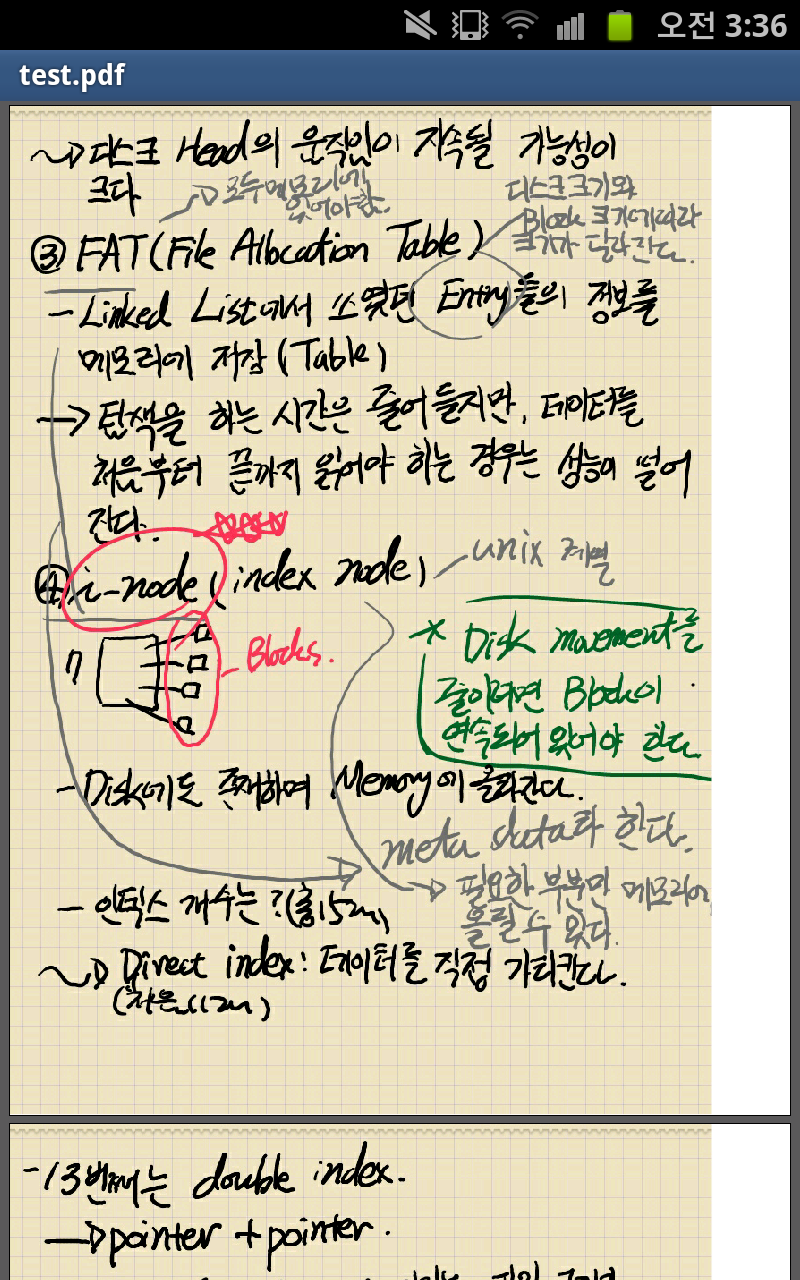 오전 3:36
test.pdf
~> 디스크 Head의 움직임이 지속될 가능성이
크다
→ 모두 메모리에
있어야함.
디스크 크기와
Block 크기에 따라
크기가 달라간다.
③ FAT(File Allocation Table)
- Linked List에서 쓰였던 Entry들의 정보를
메모리에 저장 (Table)
→ 탐색을 하는 시간은 줄어들지만, 데이터를
처음부터 끝까지 읽어야 하는 경우는 성능이 떨어
진다.
④ i-node (index node)
unix 계열
Blocks.
* Disk movement를
줄이려면 Block이
연속되어 있어야 한다
- Disk에도 존재하며 Memory에 올라간다.
meta data라 한다.
→ 필요한 부분만 메모리에
올릴 수 있다.
- 인덱스 개수는? (총 15개)
~> Direct index: 데이터를 직접 가리킨다.
(처음 12개)
- 13번째는 double index.
→ pointer + pointer.